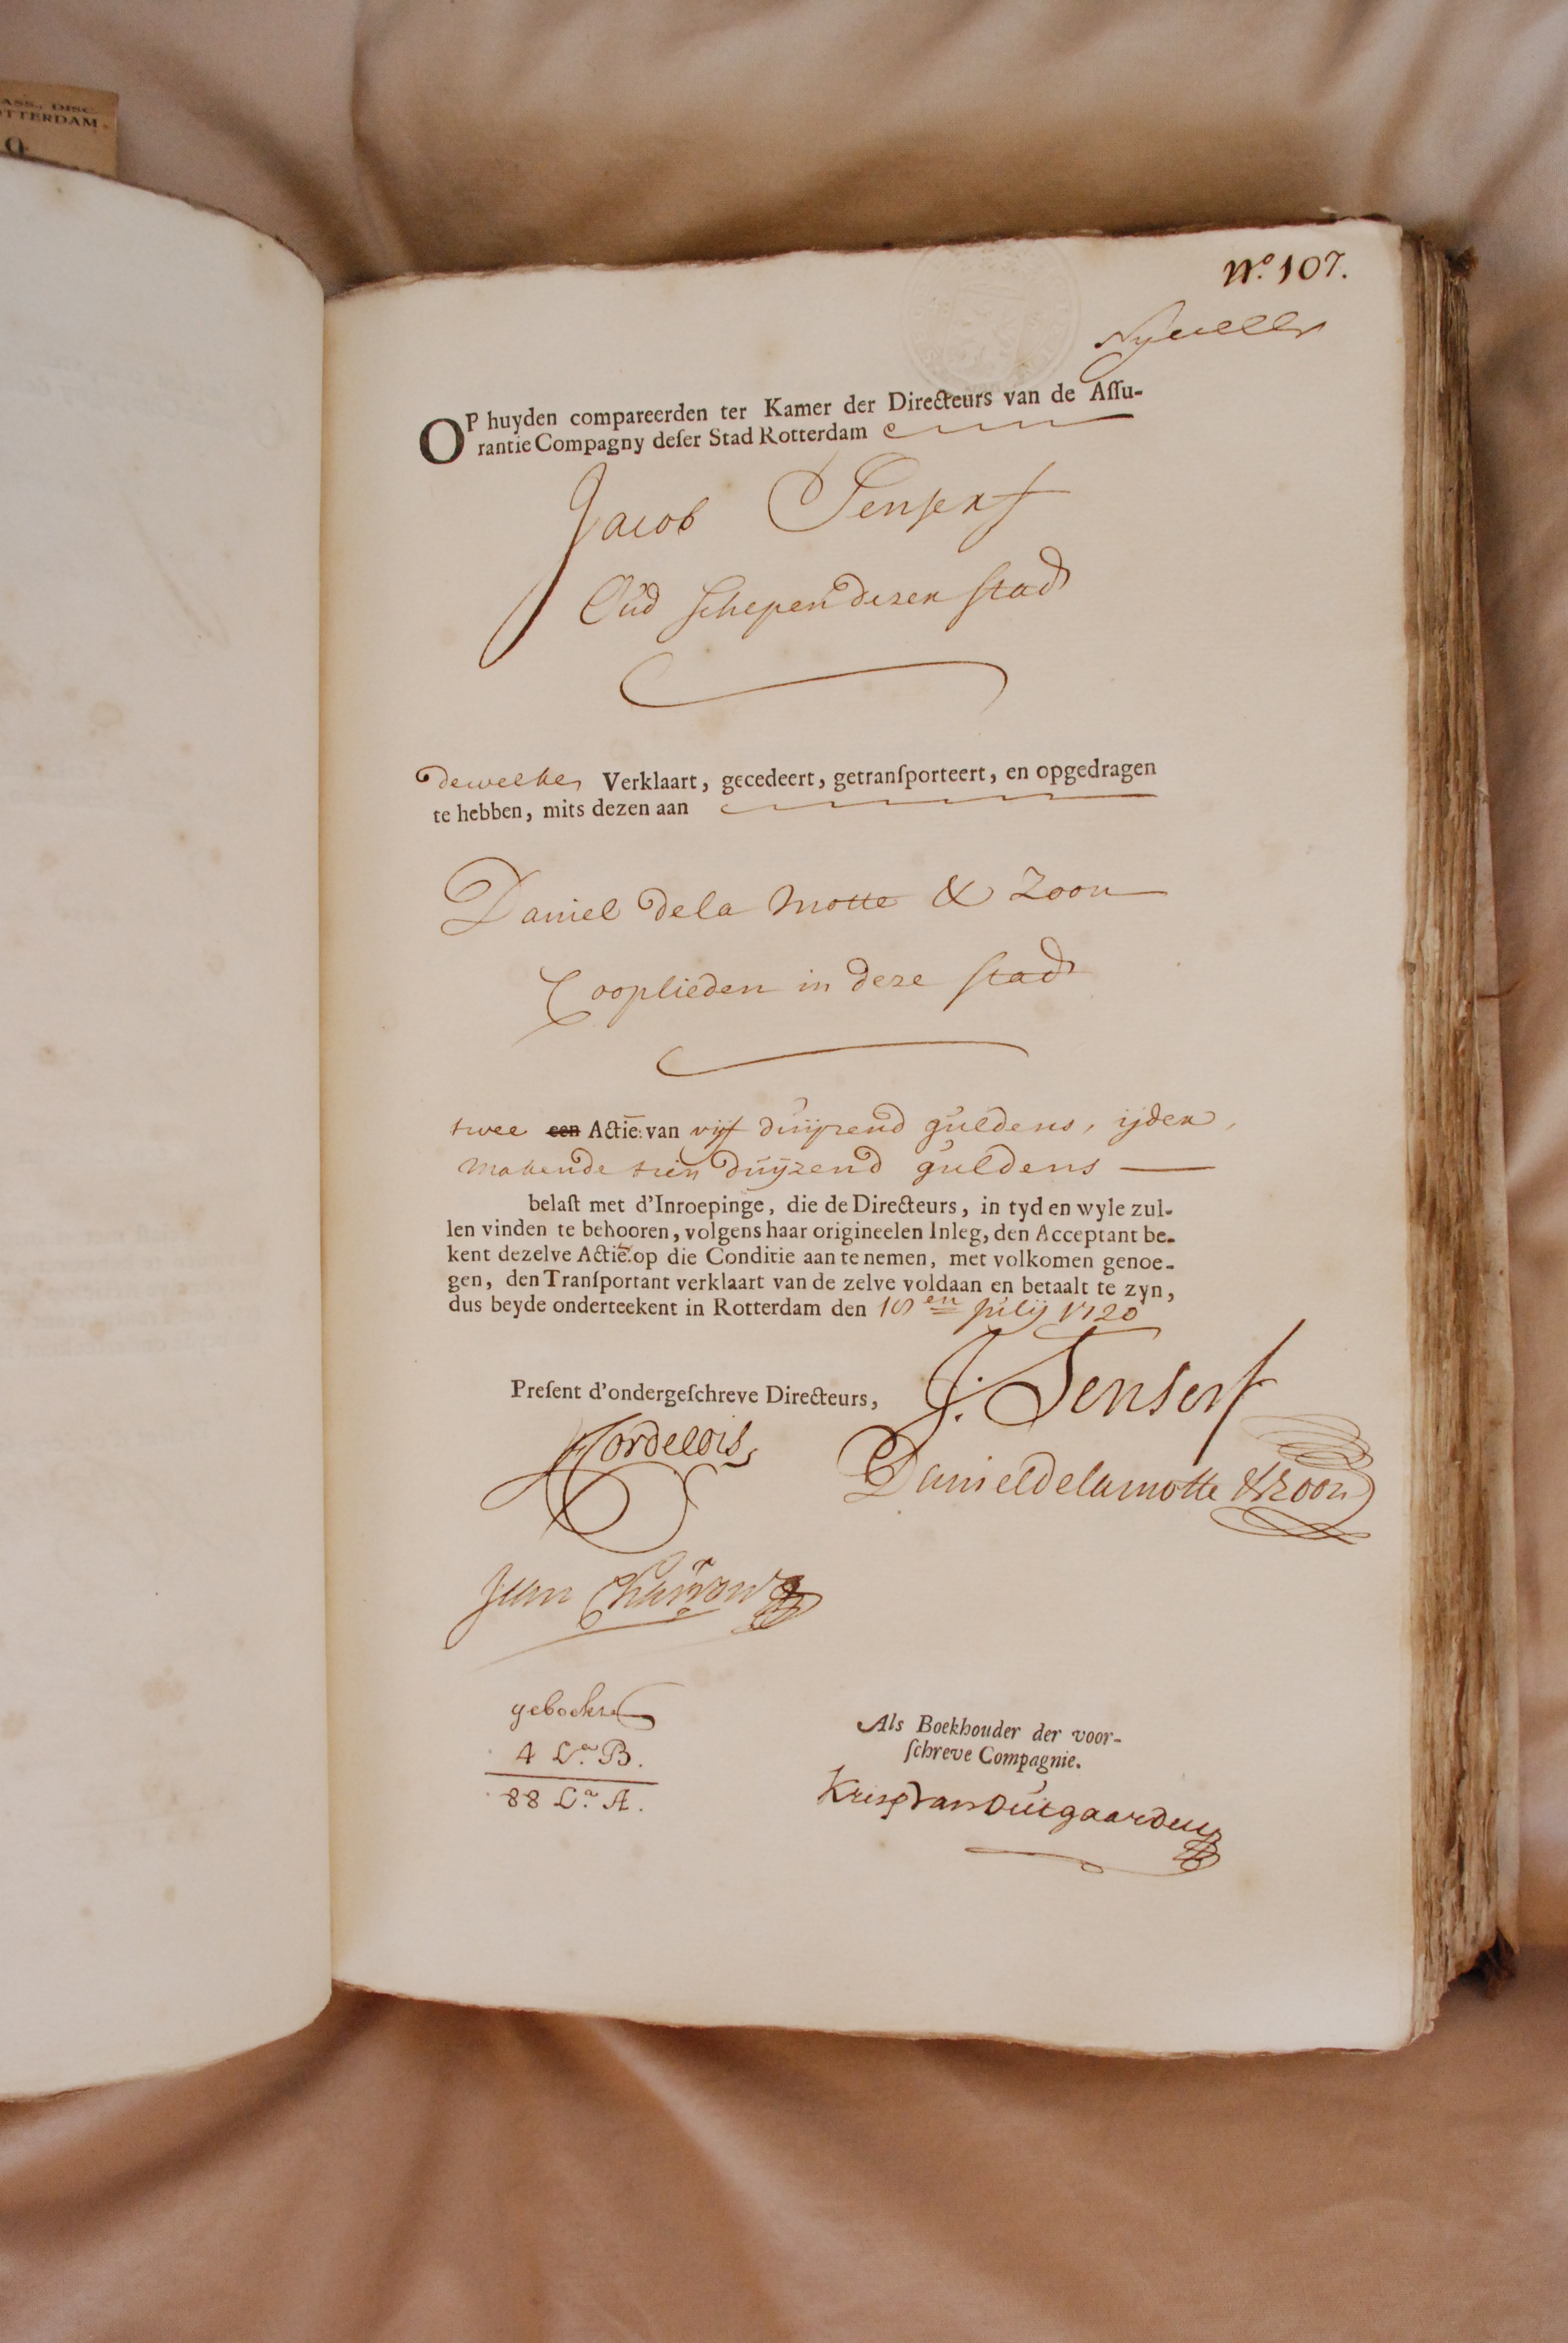 ASS., DISC.
OTTERDAM.
No. 107.
OP huyden compareerden ter Kamer der Directeurs van de Assu-
rantie Compagny deser Stad Rotterdam
Jacob Senserf
Oud Schepen dezer Stad
dewelke Verklaart, gecedeert, getransporteert, en opgedragen
te hebben, mits dezen aan
Daniel de la Motte & Zoon
Cooplieden in deze Stad
twee een Actie: van vyf duijzend guldens, ijder,
makende tien duijzend guldens
belast met d'Inroepinge, die de Directeurs, in tyd en wyle zul-
len vinden te behooren, volgens haar origineelen Inleg, den Acceptant be-
kent dezelve Actie op die Conditie aan te nemen, met volkomen genoe-
gen, den Transportant verklaart van de zelve voldaan en betaalt te zyn,
dus beyde onderteekent in Rotterdam den en Julij 1720
Present d'ondergeschreve Directeurs,
J. Senserf
Cordelois
Daniel de la motte & zoon
Jean
geboekt
4 La. B.
88 La. A.
Als Boekhouder der voor-
schreve Compagnie.
van Outgaarden